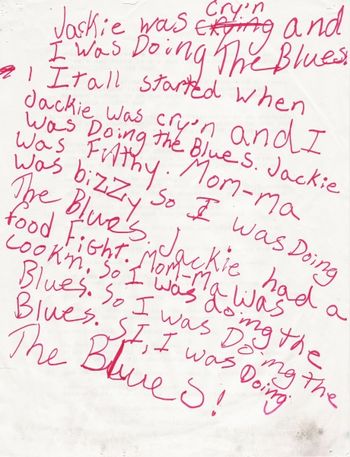 cry'n
Jackie was crying and
I was Doing The Blues.
I Itall started when
Jackie was cry'n and I
was Doing the Blues. Jackie
was Filthy. Mom-ma
was bizzy So I was Doing
The Blues. Jackie had a
food Fight. Mom-Ma was
cookn. So I was doing the
Blues. So I was Doing the
Blues. SI, I was Doing
The Blues!